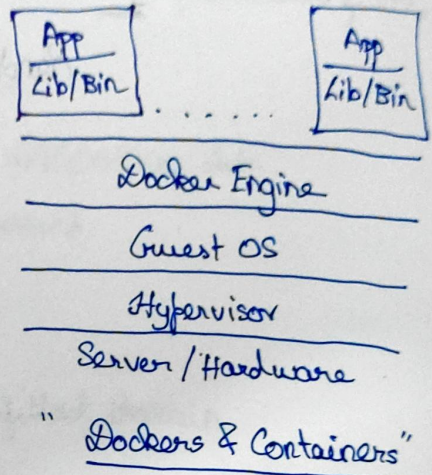 App App
Lib/Bin Lib/Bin
. . . . . .
Docker Engine
Guest OS
Hypervisor
Server/Hardware
"Dockers & Containers"